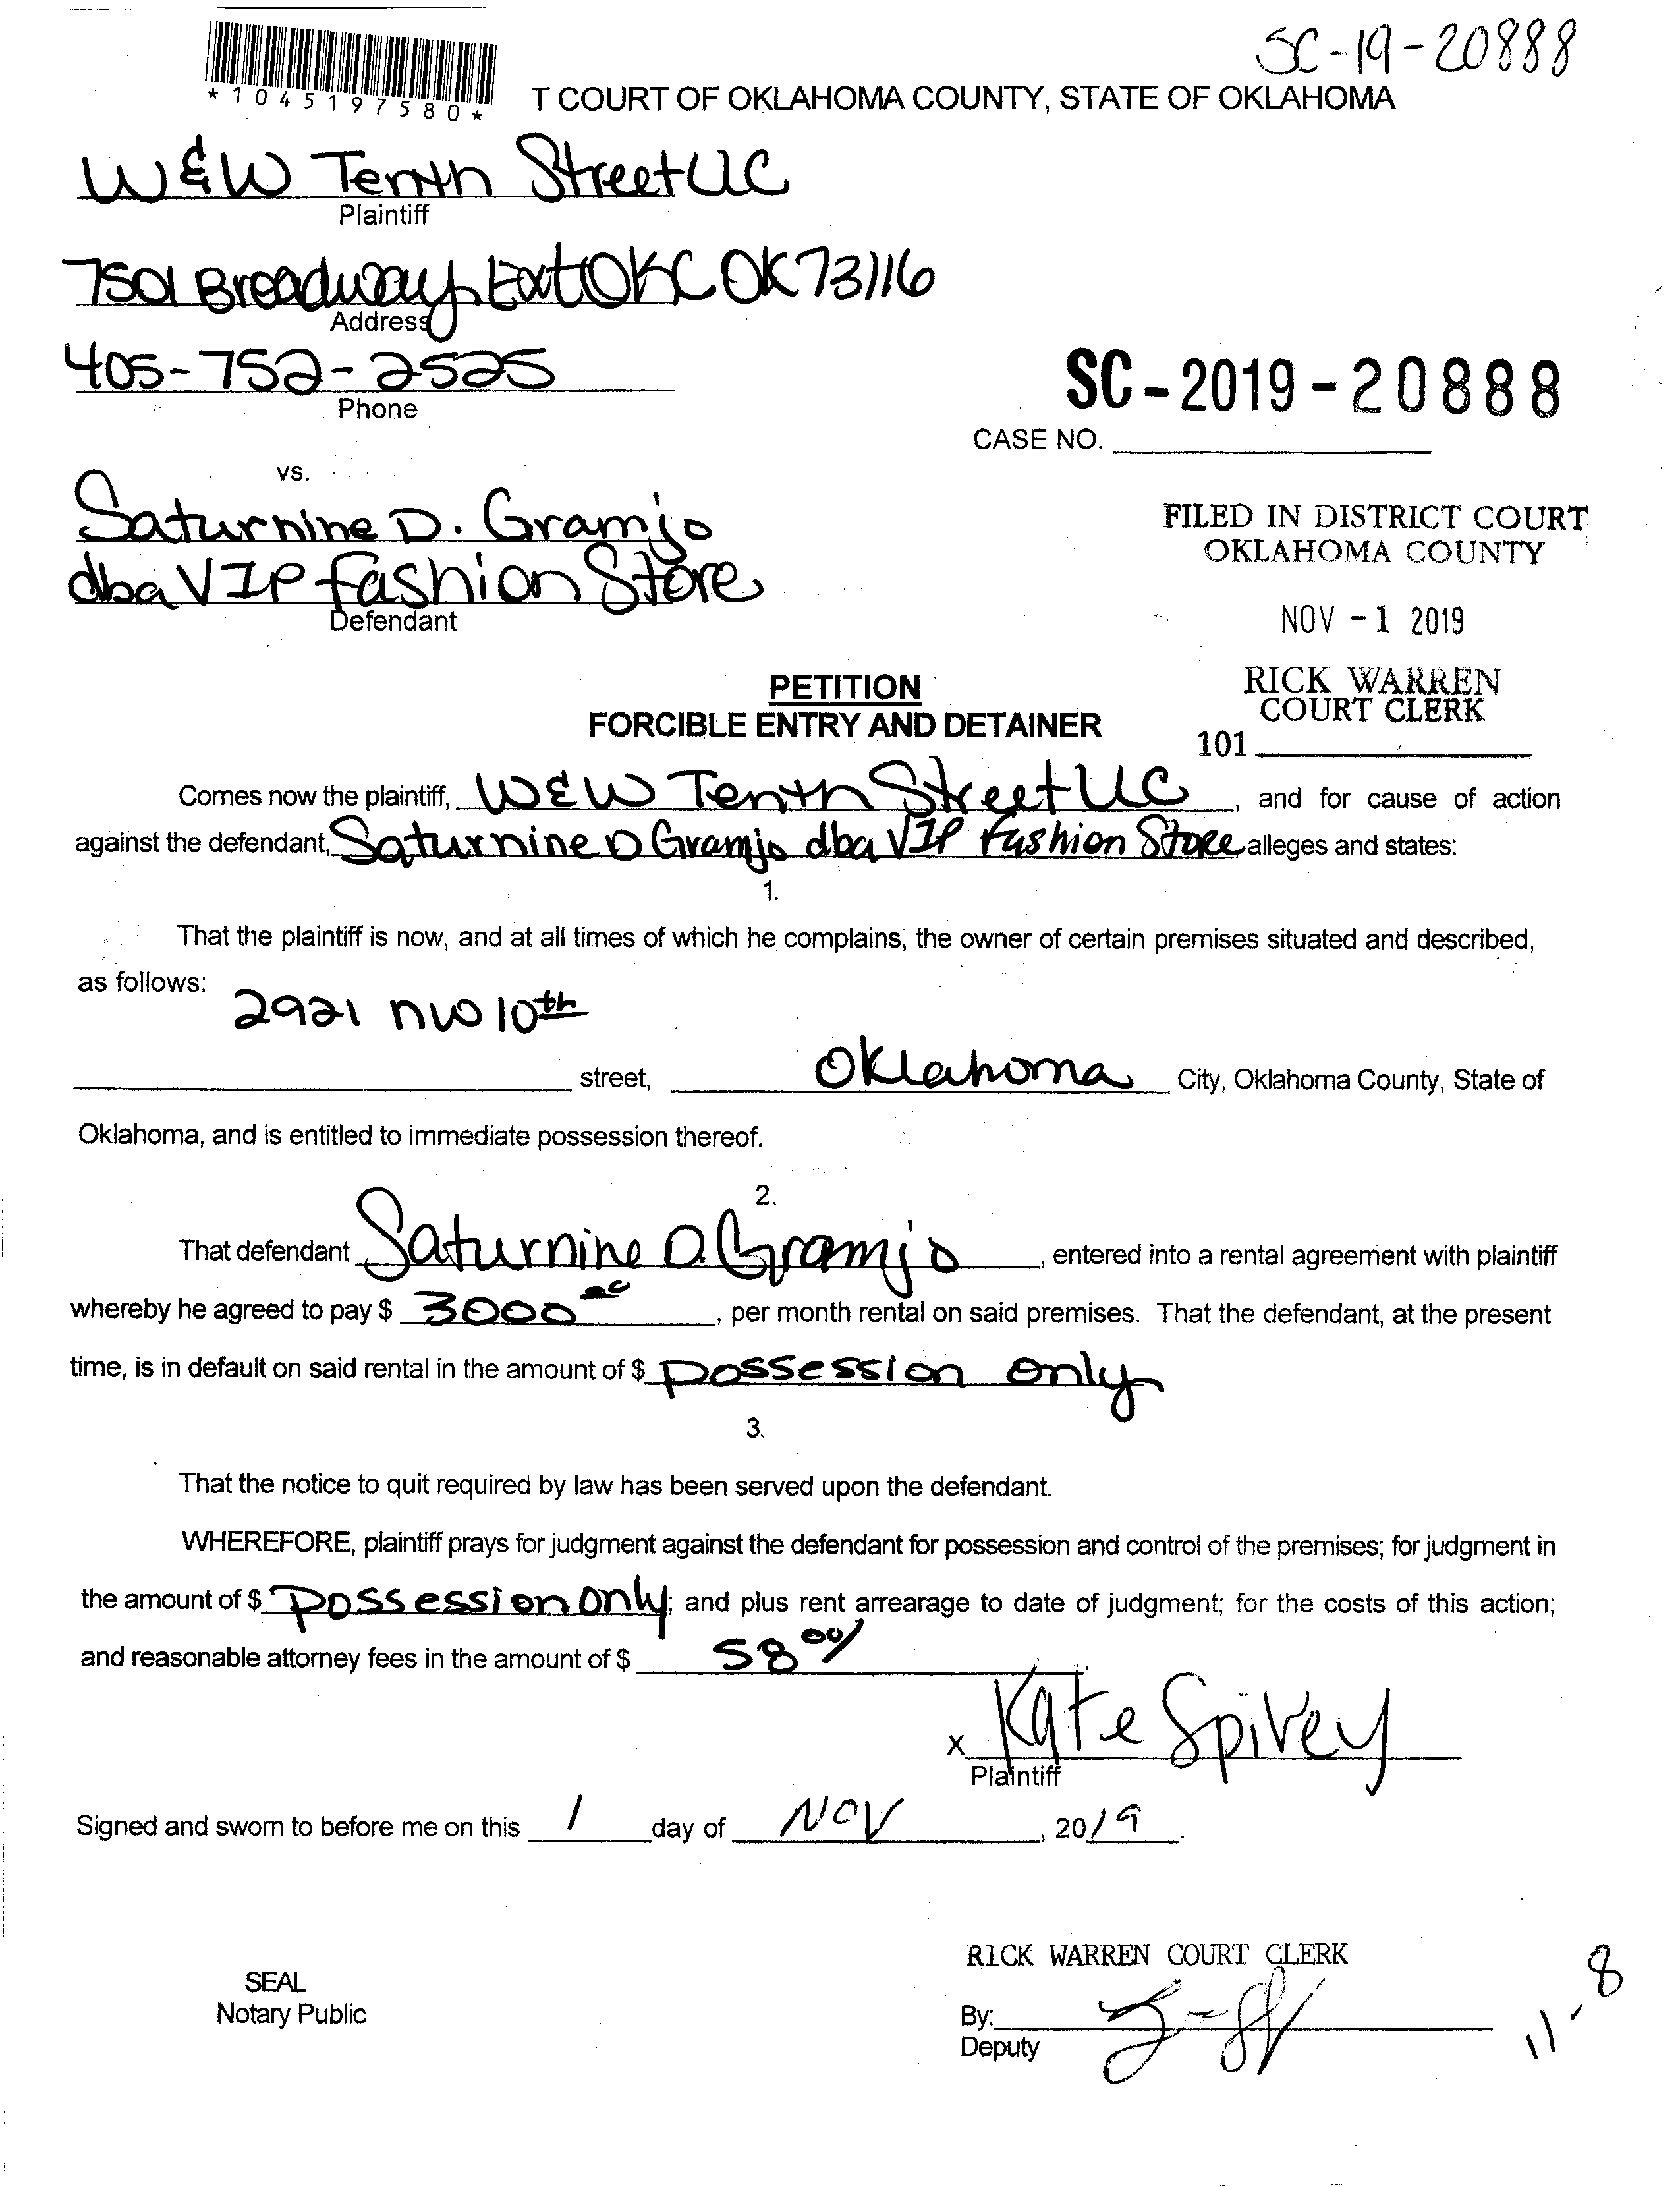 SC-19-20888
*1045197580*
T COURT OF OKLAHOMA COUNTY, STATE OF OKLAHOMA
W&W Tenth Street LLC
Plaintiff
7501 Broadway Ext OKC OK 73116
Address
405-752-2525
Phone
SC-2019-20888
CASE NO.
vs.
Saturnine D. Gramjo
dba VIP Fashion Store
Defendant
FILED IN DISTRICT COURT
OKLAHOMA COUNTY
NOV -1 2019
RICK WARREN
COURT CLERK
101
PETITION
FORCIBLE ENTRY AND DETAINER
Comes now the plaintiff, W&W Tenth Street LLC, and for cause of action
against the defendant, Saturnine D Gramjo dba VIP Fashion Store, alleges and states:
1.
That the plaintiff is now, and at all times of which he complains, the owner of certain premises situated and described,
as follows:
2921 NW 10th
street, Oklahoma City, Oklahoma County, State of
Oklahoma, and is entitled to immediate possession thereof.
2.
That defendant Saturnine D. Gramjo, entered into a rental agreement with plaintiff
whereby he agreed to pay $ 3000 00, per month rental on said premises. That the defendant, at the present
time, is in default on said rental in the amount of $ possession only
3.
That the notice to quit required by law has been served upon the defendant.
WHEREFORE, plaintiff prays for judgment against the defendant for possession and control of the premises; for judgment in
the amount of $ Possession Only; and plus rent arrearage to date of judgment; for the costs of this action;
and reasonable attorney fees in the amount of $ 58 00/
x Kate Spivey
Plaintiff
Signed and sworn to before me on this 1 day of NOV, 2019.
RICK WARREN COURT CLERK
SEAL
Notary Public
By:
Deputy
11-8